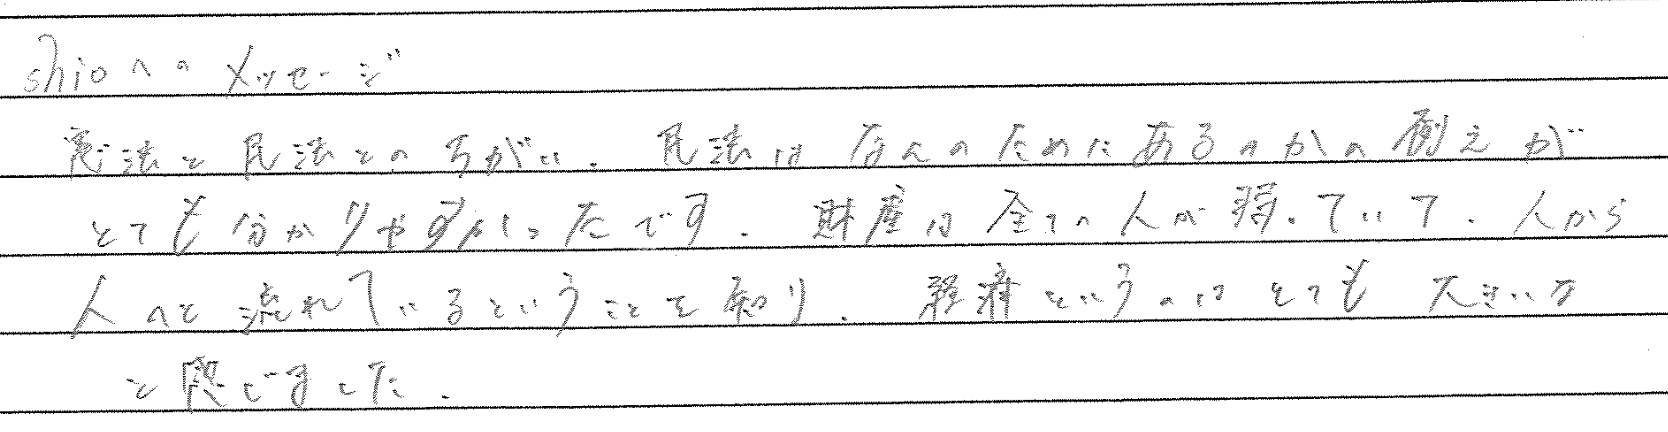 shioへのメッセージ
憲法と民法とのちがい、民法はなんのためにあるのかの例えが
とても分かりやすかったです。財産は全ての人が持っていて、人から
人へと流れているということを知り、経済というのはとても大きいな
と感じました。